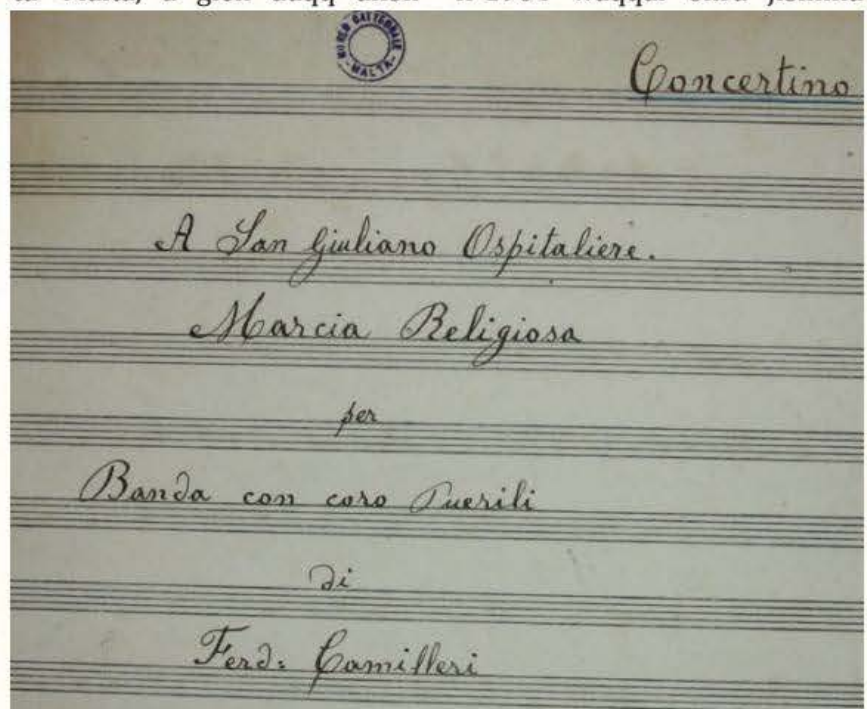 MUSEO CATTEDRALE
- MALTA -
Concertino
A San Giuliano Ospitaliere.
Marcia Religiosa
per
Banda con coro Puerili
di
Ferd: Camilleri